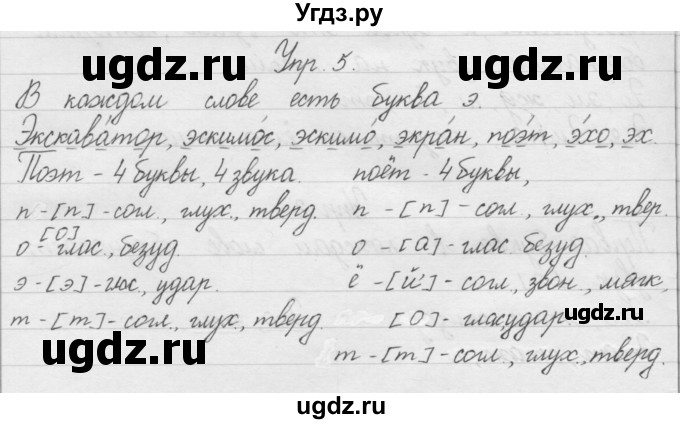 Угдз.ру
Упр. 5.
В каждом слове есть буква э.
Экскаватор, эскимос, эскимо, экран, поэт, эхо, эх.
Поэт - 4 буквы, 4 звука. поёт - 4 буквы,
п - [п] - согл., глух., тверд. п - [п] - согл., глух., твер.
[о]
о - глас., безуд. о - [а] - глас. безуд.
э - [э] - глас., удар. ё - [й'] - согл., звон., мягк.,
т - [т] - согл., глух., тверд. [о] - глас. удар.
т - [т] - согл., глух., тверд.
ugdz.ru
ugdz.ru
ugdz.ru
ugdz.ru
ugdz.ru
ugdz.ru
ugdz.ru